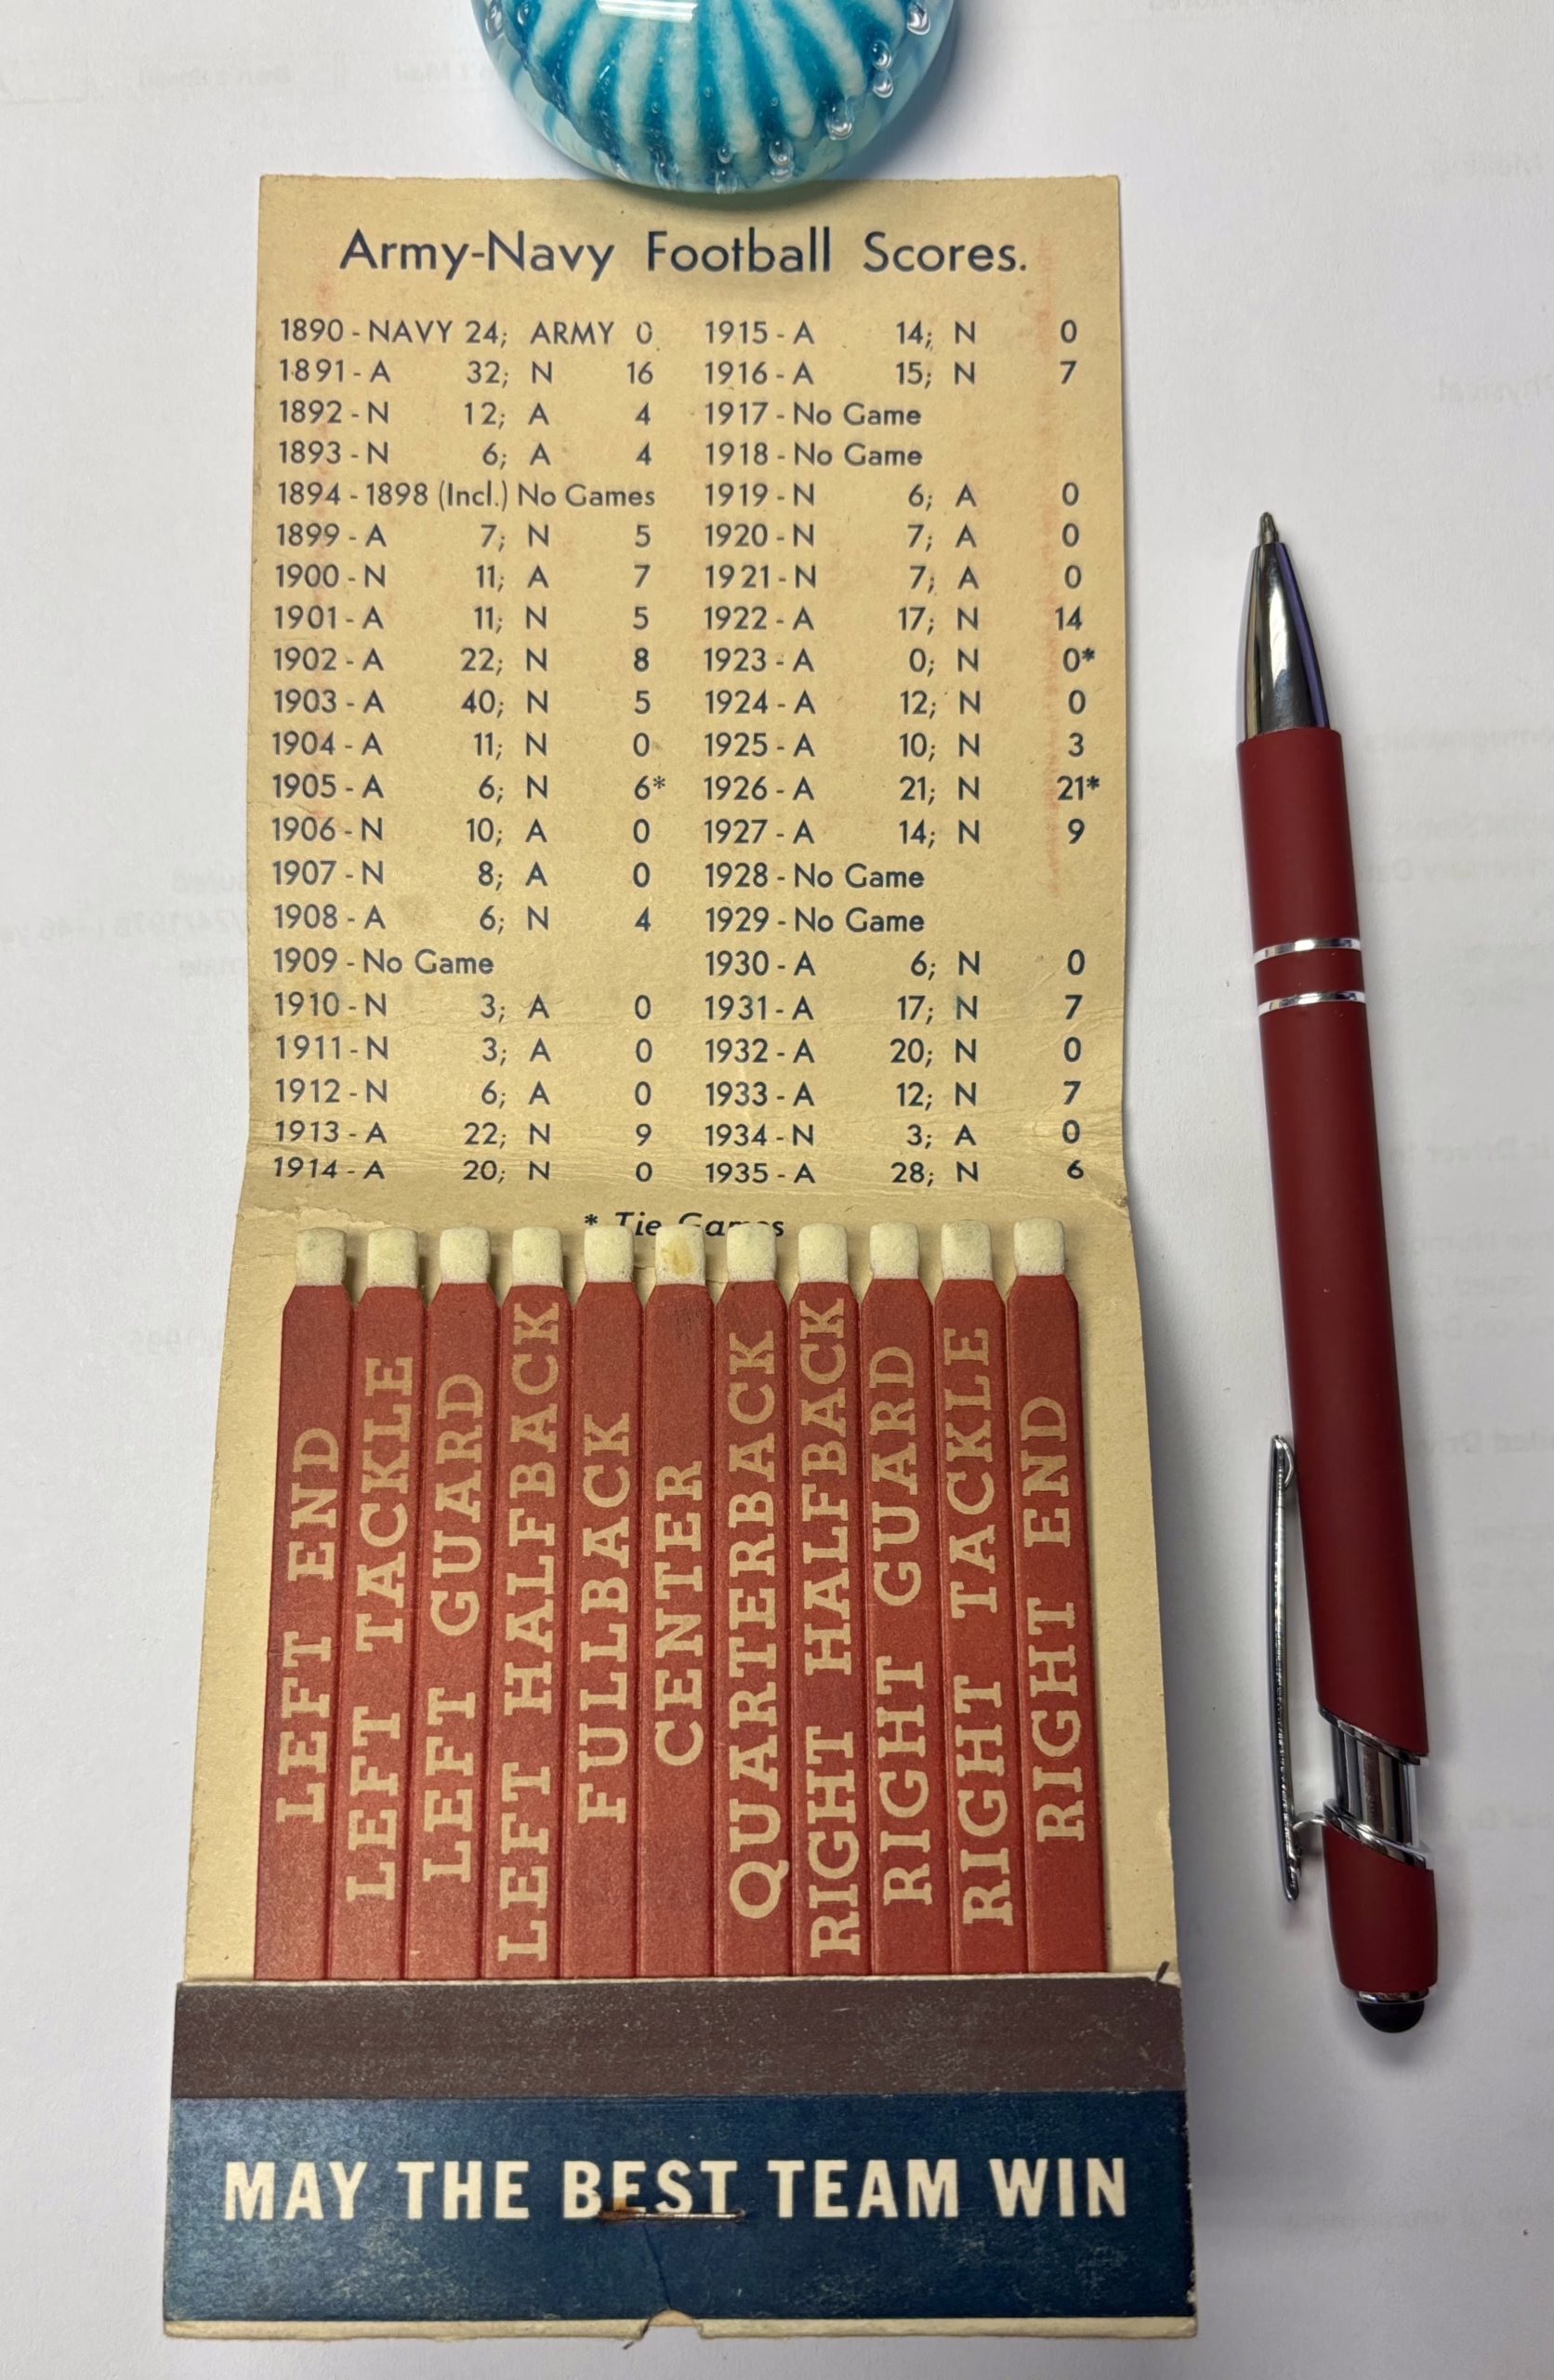 Army-Navy Football Scores.
1890 - NAVY 24; ARMY 0
1891 - A 32; N 16
1892 - N 12; A 4
1893 - N 6; A 4
1894 - 1898 (Incl.) No Games
1899 - A 7; N 5
1900 - N 11; A 7
1901 - A 11; N 5
1902 - A 22; N 8
1903 - A 40; N 5
1904 - A 11; N 0
1905 - A 6; N 6*
1906 - N 10; A 0
1907 - N 8; A 0
1908 - A 6; N 4
1909 - No Game
1910 - N 3; A 0
1911 - N 3; A 0
1912 - N 6; A 0
1913 - A 22; N 9
1914 - A 20; N 0
1915 - A 14; N 0
1916 - A 15; N 7
1917 - No Game
1918 - No Game
1919 - N 6; A 0
1920 - N 7; A 0
1921 - N 7; A 0
1922 - A 17; N 14
1923 - A 0; N 0*
1924 - A 12; N 0
1925 - A 10; N 3
1926 - A 21; N 21*
1927 - A 14; N 9
1928 - No Game
1929 - No Game
1930 - A 6; N 0
1931 - A 17; N 7
1932 - A 20; N 0
1933 - A 12; N 7
1934 - N 3; A 0
1935 - A 28; N 6
* Tie Games
LEFT END
LEFT TACKLE
LEFT GUARD
LEFT HALFBACK
FULLBACK
CENTER
QUARTERBACK
RIGHT HALFBACK
RIGHT GUARD
RIGHT TACKLE
RIGHT END
MAY THE BEST TEAM WIN